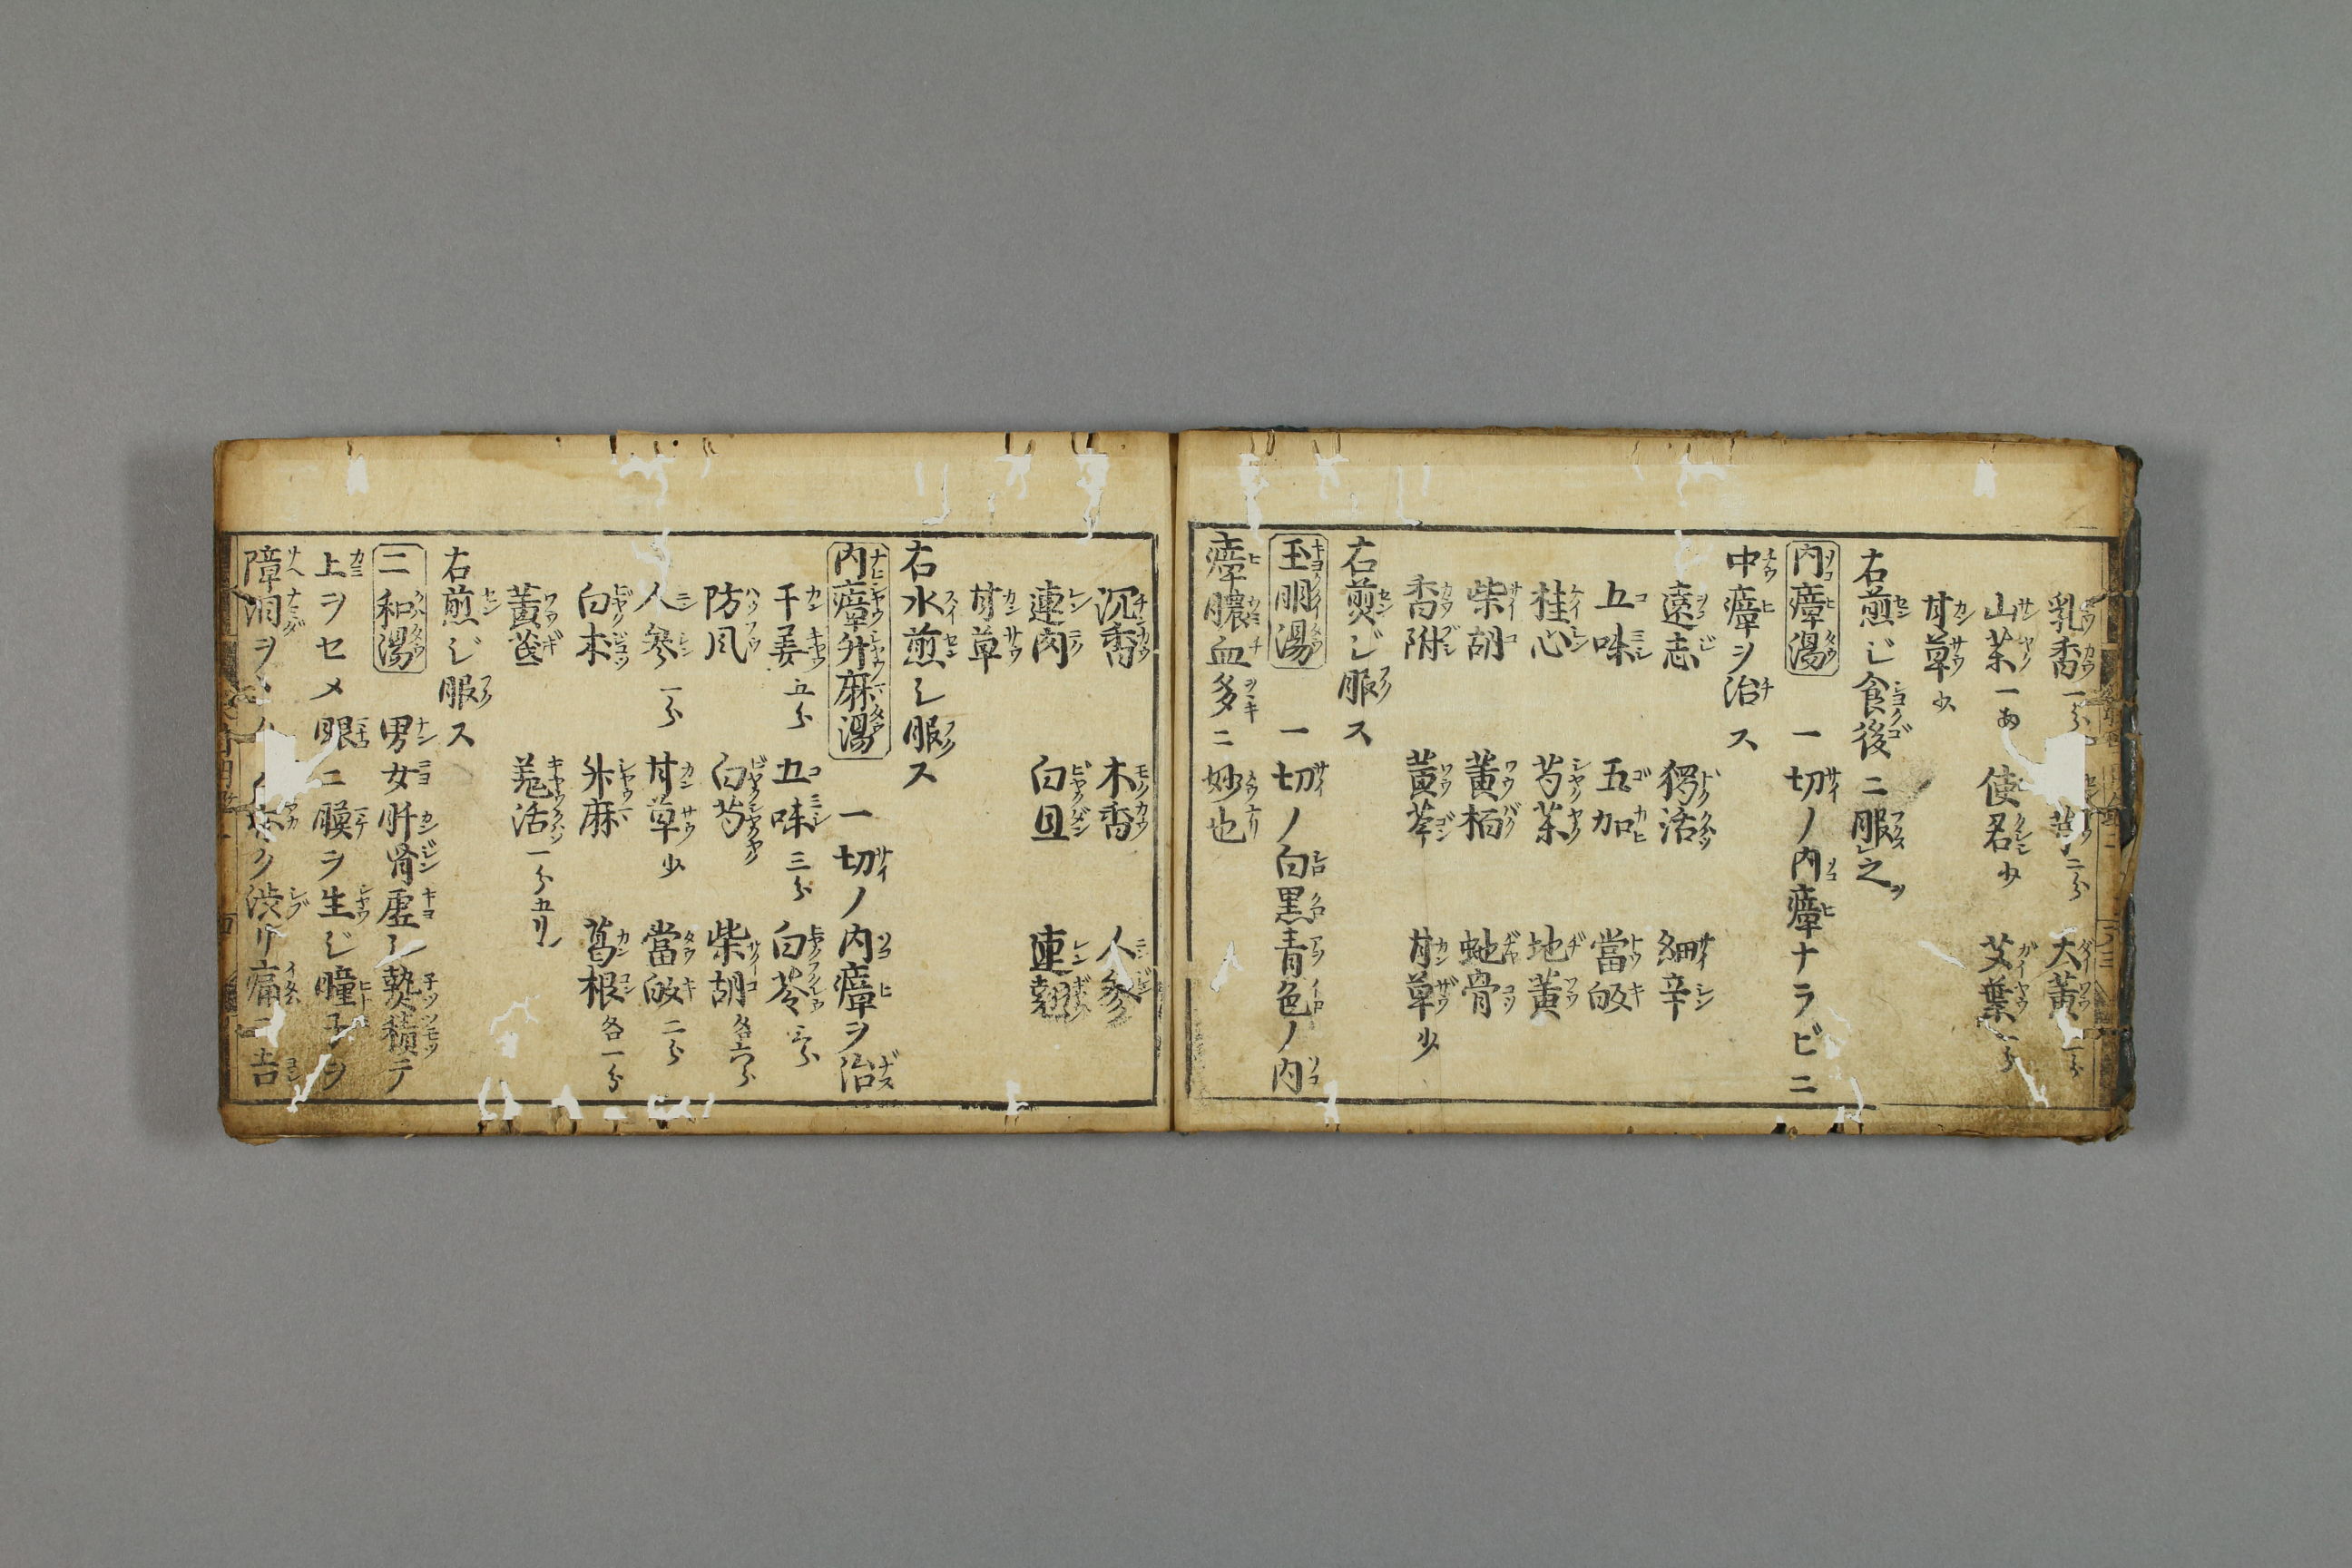 乳香一分 二分 大黄一分
山茱一匁 使君少 艾葉
甘草少
右煎ジ食後ニ服之
内瘴湯 一切ノ内瘴ナラビニ
中瘴ヲ治ス
遠志 独活 細辛
五味 五加 當皈
桂心 芍茱 地黄
柴胡 黄栢 虵骨
香附 黄芩 甘草少
右煎ジ服ス
玉明湯 一切ノ白黒青色ノ内
瘴膿血多ニ妙也
沉香 木香 人参
蓮肉 白且 連翹
甘草
右水煎シ服ス
内瘴升麻湯 一切ノ内瘴ヲ治
干姜五分 五味三分 白苓三分
防風 白芍 柴胡各六分
人参一分 甘草少 當皈二分
白朮 升麻 葛根各一分
黄茋 羗活一分五リン
右煎ジ服ス
二和湯 男女肝腎虚シ熱積テ
上ヲセメ眼ニ膜ヲ生ジ瞳子ヲ
障泪ヲ ク渋リ痛